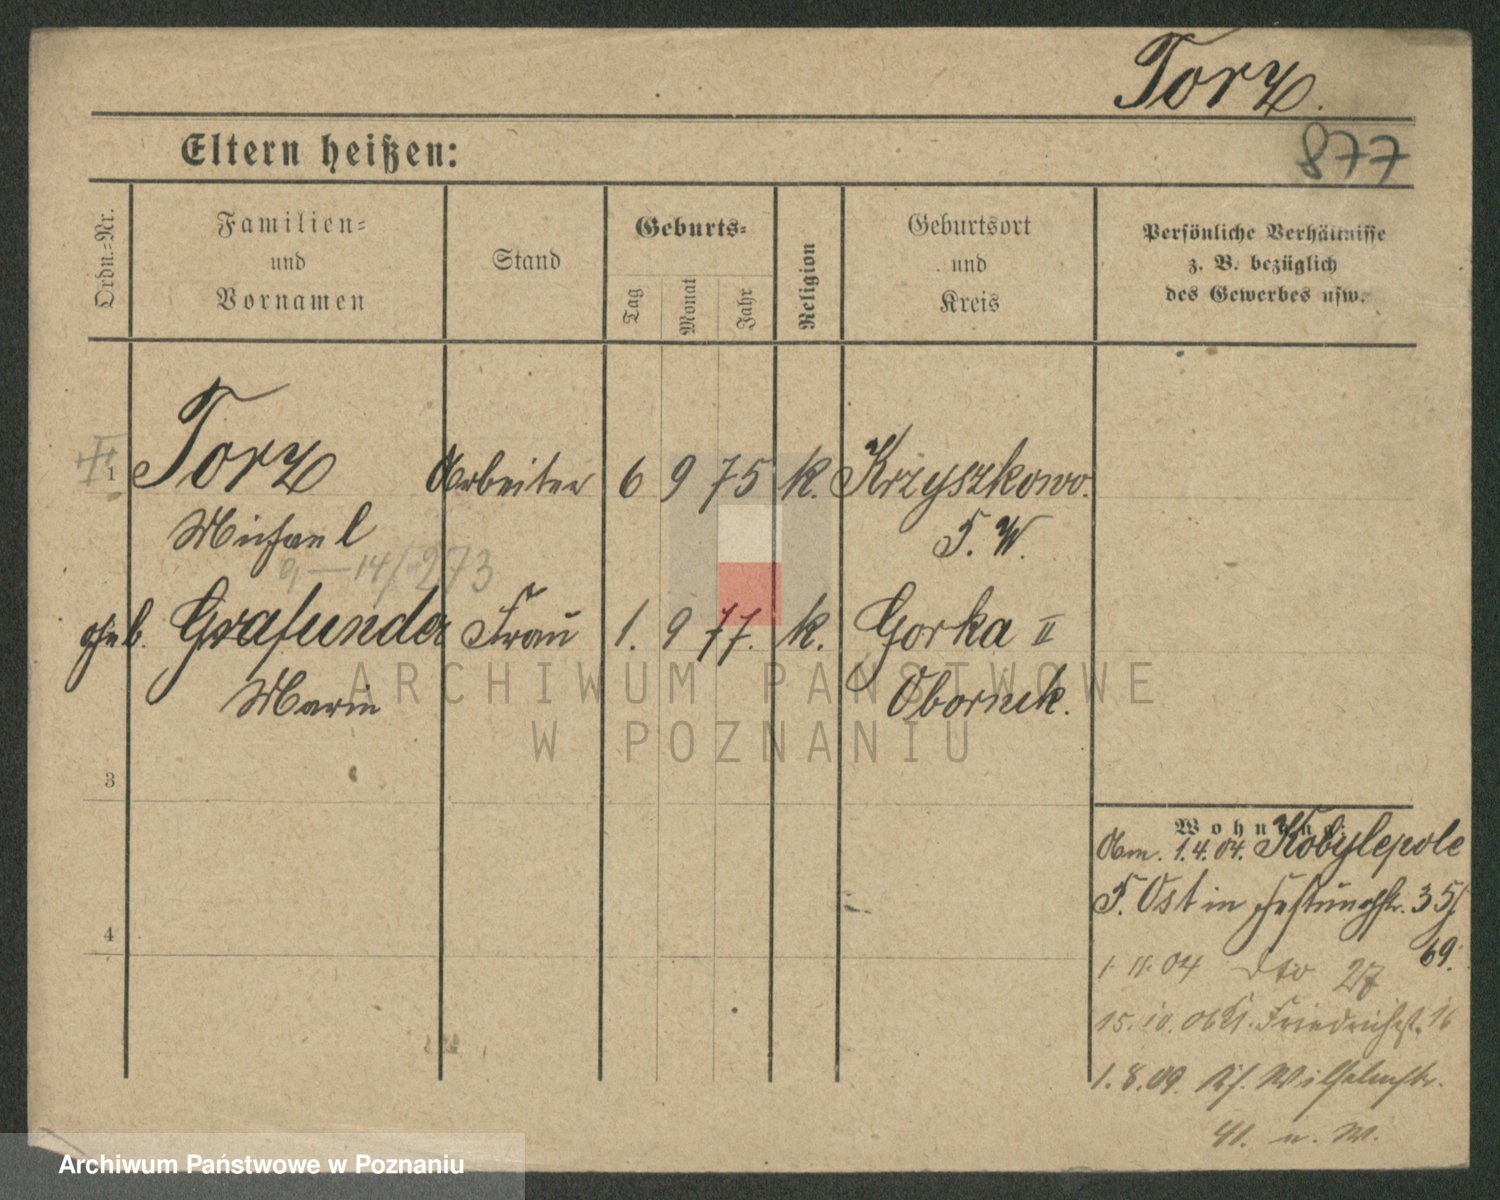 Torz.
877
Eltern heißen:
Ordn.-Nr.
Familien-
und
Vornamen
Stand
Geburts-
Tag
Monat
Jahr
Religion
Geburtsort
und
Kreis
Persönliche Verhältnisse
z. B. bezüglich
des Gewerbes usw.
1 Torz Arbeiter 6 9 75 k. Krzyszkowo.
Michael P. W.
14/273
geb. Grafunder Frau 1. 9 77. k. Gorka II
Marie Obornik.
3
4
Wohnung:
1.4.04. Kobylepole
P. Ost in Festungsstr. 35/
69.
1.11.04 dto 27
15.10.06 Friedrichst. 16
1.8.09. Wilhelmstr.
41. n. W.
ARCHIWUM PAŃSTWOWE
W POZNANIU
Archiwum Państwowe w Poznaniu